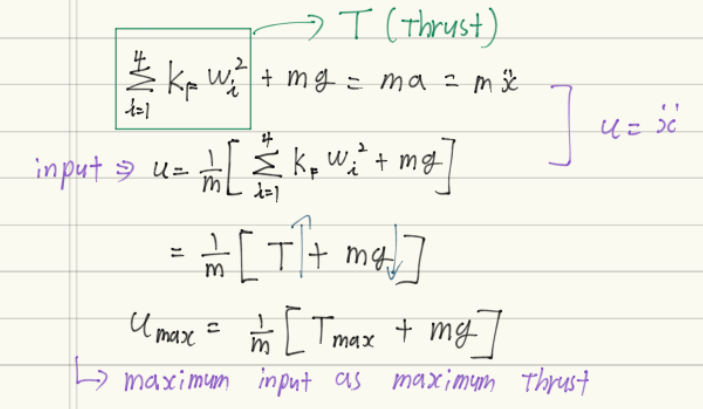 T (Thrust)
∑_{i=1}^{4} k_F w_i^2 + mg = ma = mẍ
u = ẍ
input ⇒ u = 1/m [ ∑_{i=1}^{4} k_F w_i^2 + mg ]
= 1/m [ T↑ + mg↓ ]
u_max = 1/m [ T_max + mg ]
↳ maximum input as maximum thrust